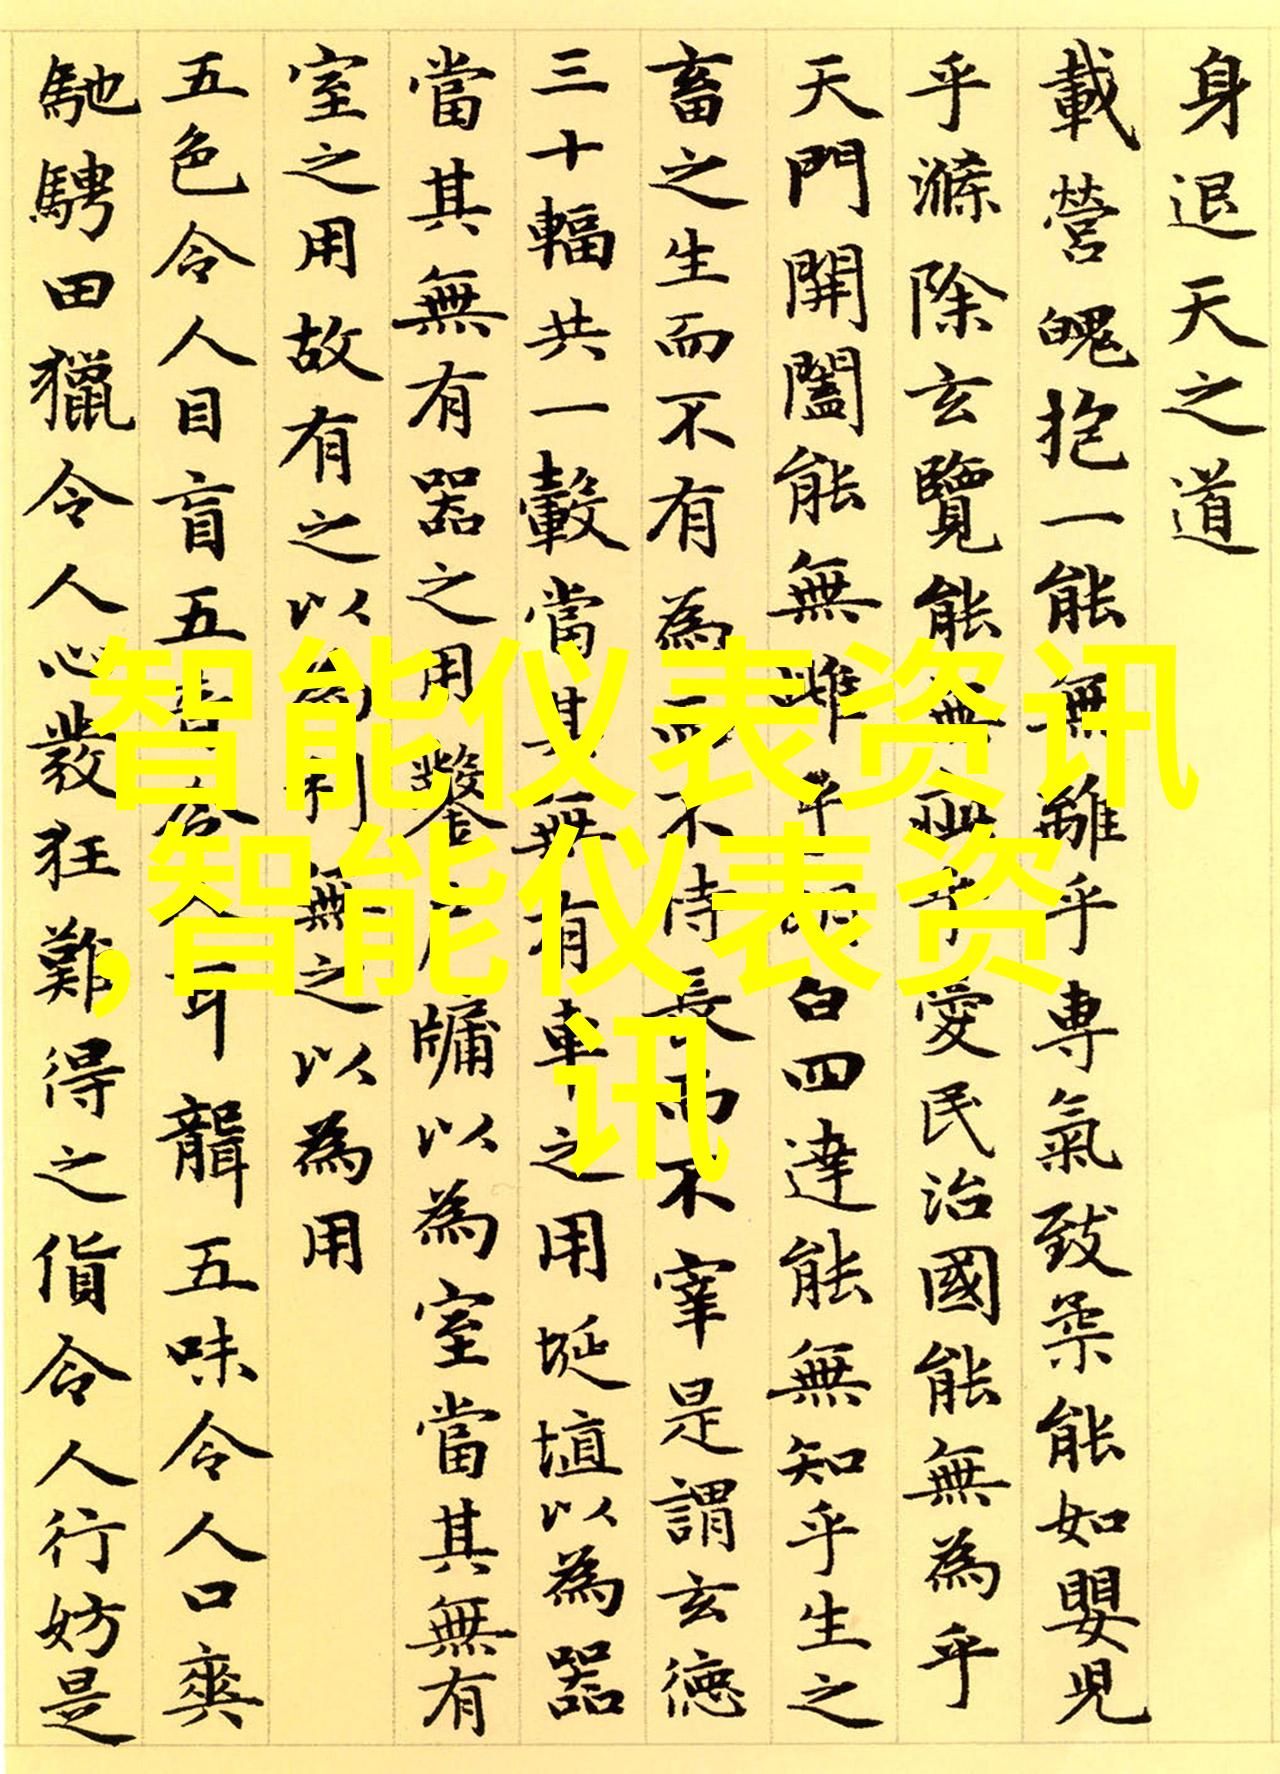 身退天之道
載營魄抱一能無離乎專氣致柔能如嬰兒
乎滌除玄覽能無疵乎愛民治國能無為乎
天門開闔能無雌乎明白四達能無知乎生之
畜之生而不有為而不恃長而不宰是謂玄德
三十輻共一轂當其無有車之用埏埴以為器
當其無有器之用鑿戶牖以為室當其無有
室之用故有之以為利無之以為用
五色令人目盲五音令人耳聾五味令人口爽
馳騁田獵令人心發狂難得之貨令人行妨是
智能仪表资讯
,智能仪表资
讯